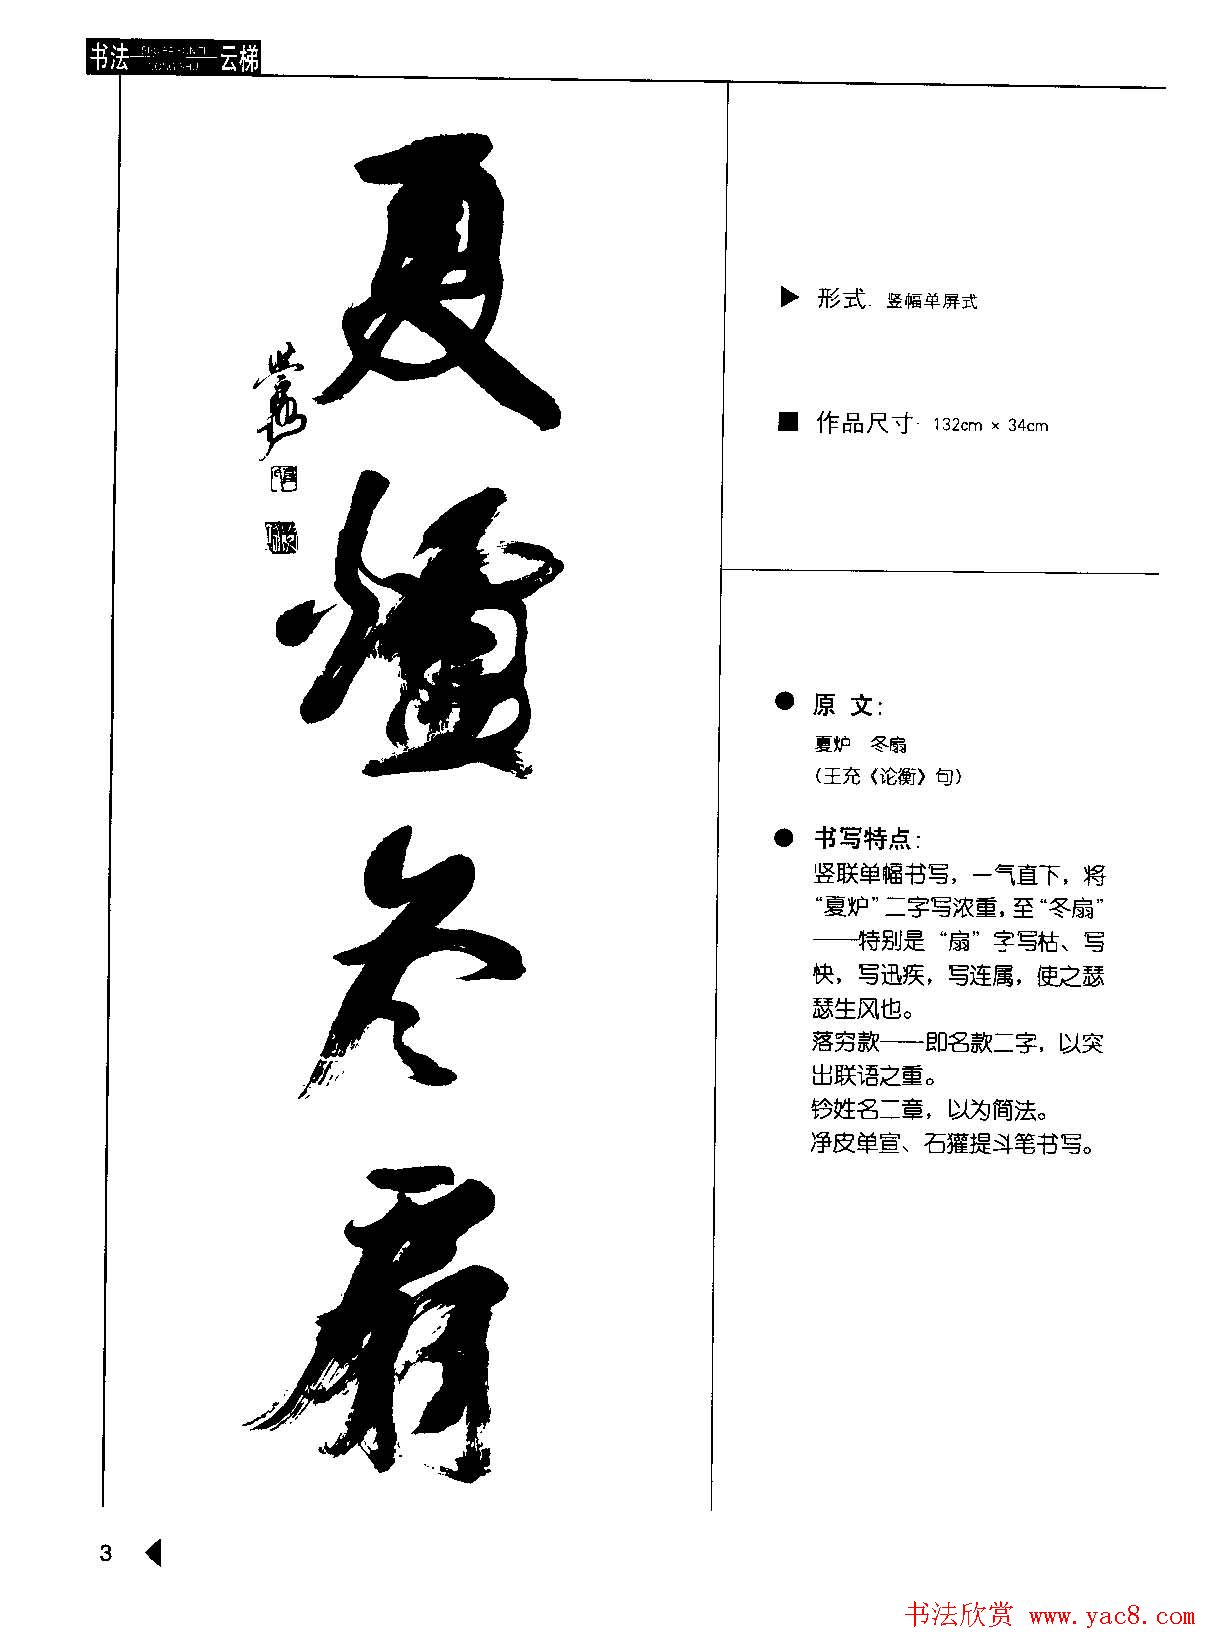 书法
云梯
夏炉冬扇
形式. 竖幅单屏式
作品尺寸· 132cm × 34cm
原 文:
夏炉 冬扇
(王充《论衡》句)
书写特点:
竖联单幅书写, 一气直下, 将
“夏炉”二字写浓重, 至“冬扇”
——特别是“扇”字写枯、写
快, 写迅疾, 写连属, 使之瑟
瑟生风也。
落穷款——即名款二字, 以突
出联语之重。
钤姓名二章, 以为简法。
净皮单宣、石獾提斗笔书写。
3
书法欣赏 www.yac8.com